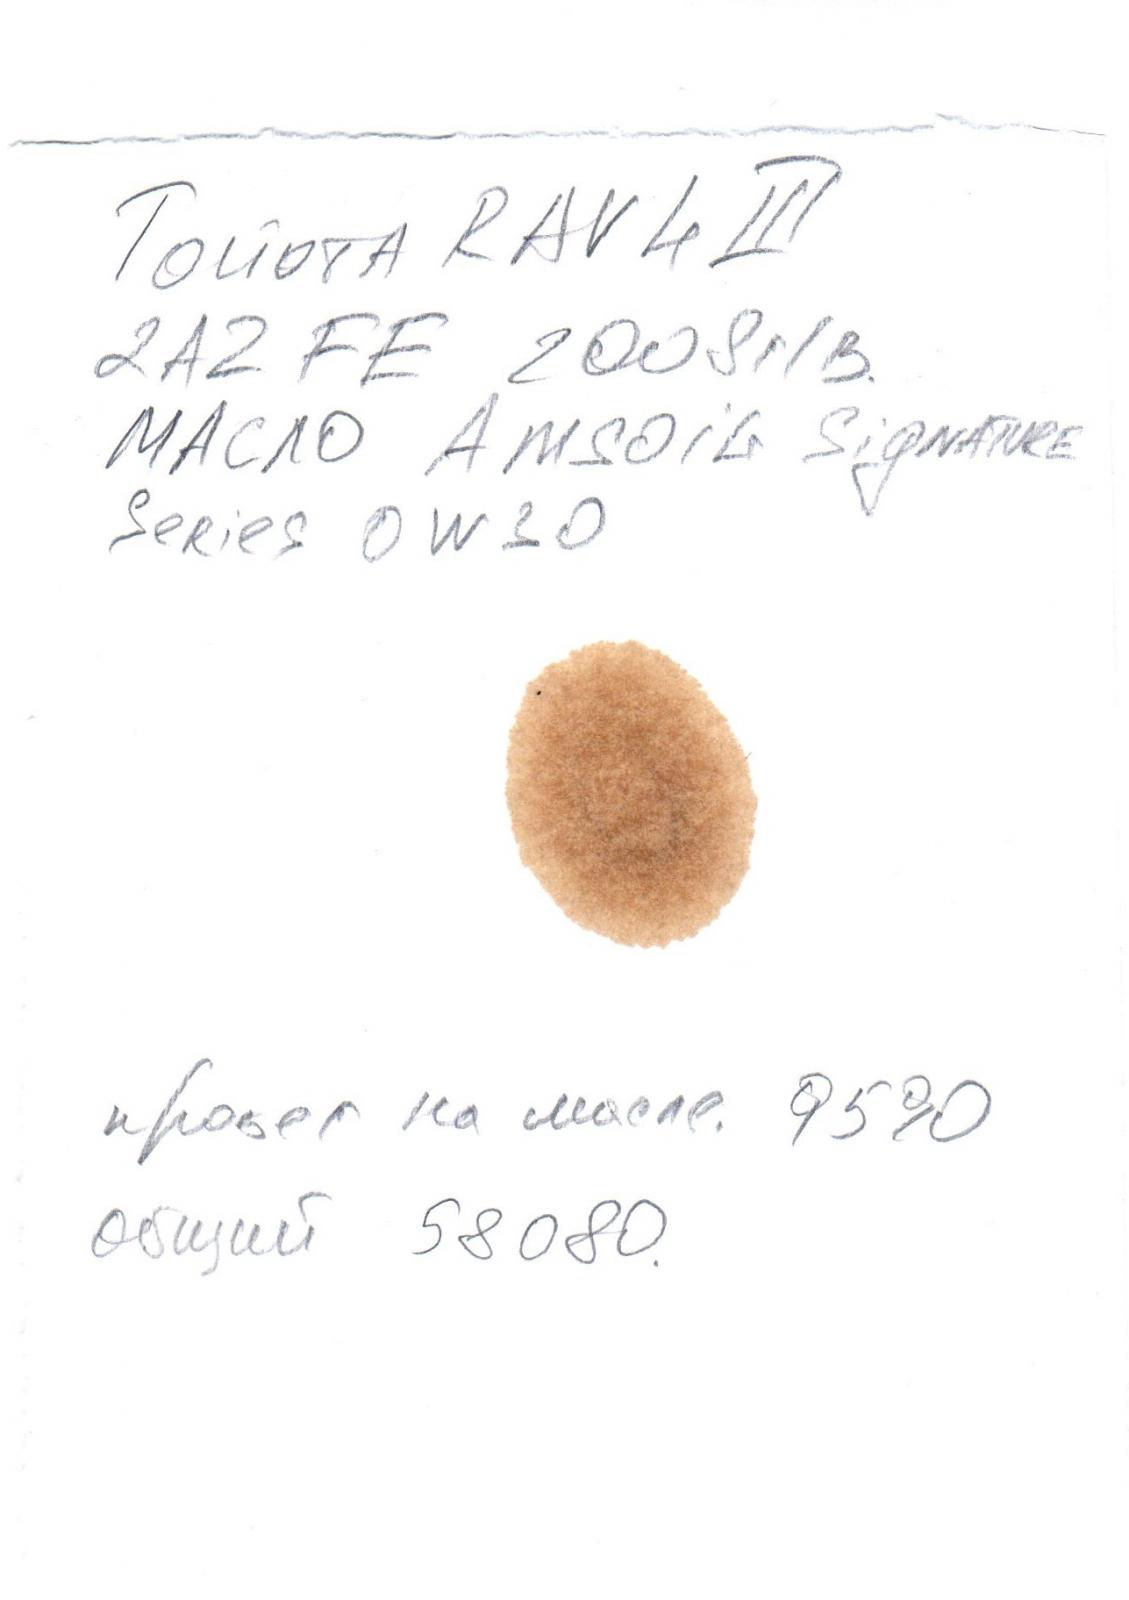 Тойота RAV4 III
2AZ FE 2008г/в.
МАСЛО AMSOiL SigNATURE
Series 0W30
пробег на масле. 9590
общий 58080.